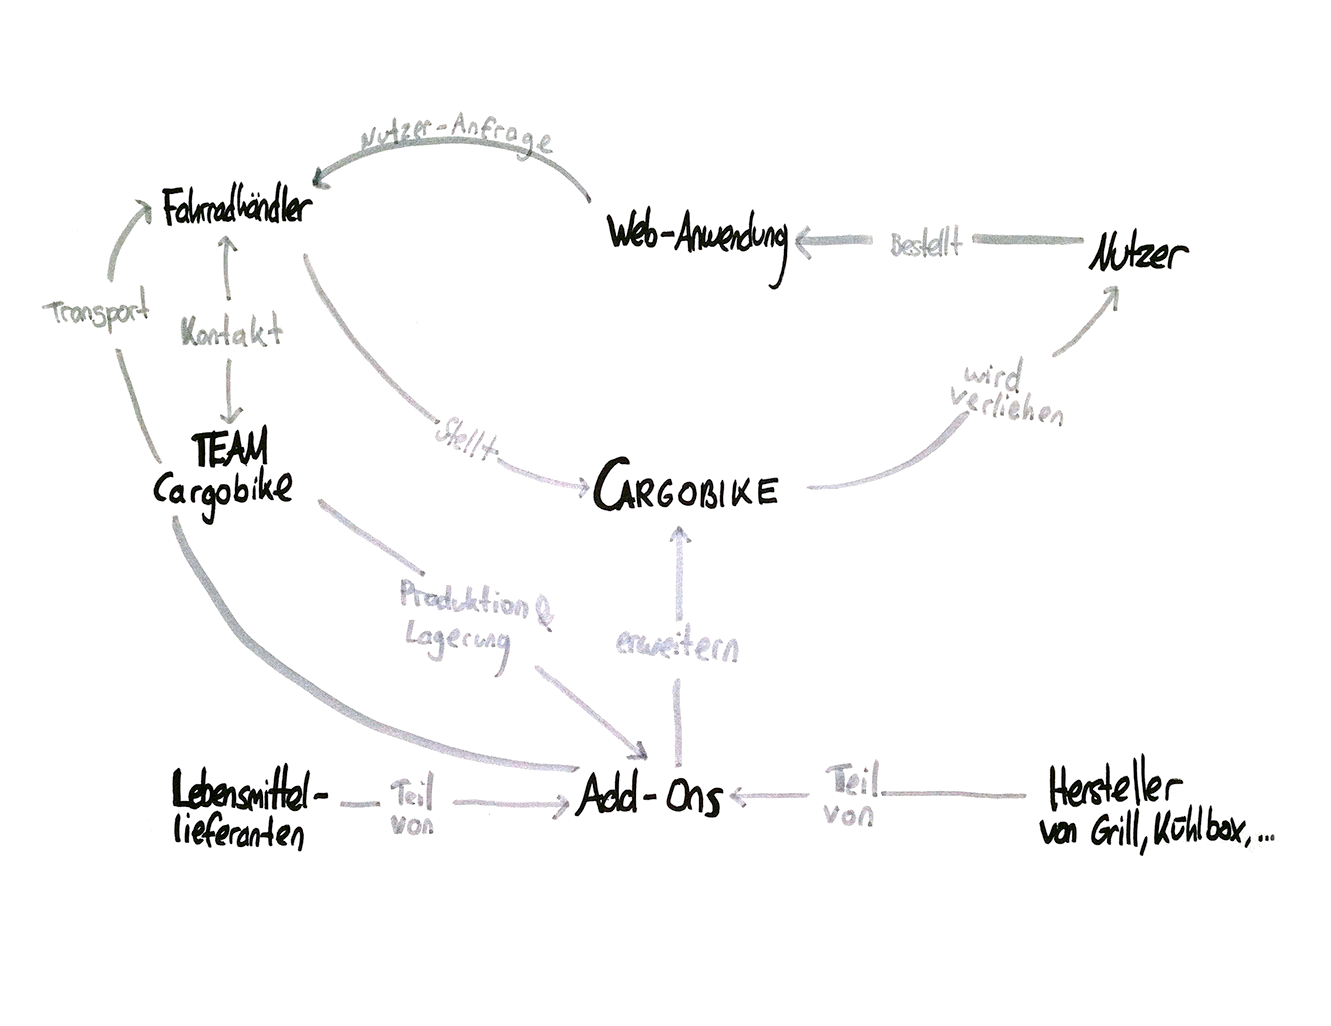 Nutzer-Anfrage
Fahrradhändler
Web-Anwendung
Bestellt
Nutzer
Transport
Kontakt
wird
verliehen
TEAM
Cargobike
Stellt
CARGOBIKE
Produktion &
Lagerung
erweitern
Lebensmittel-
lieferanten
Teil
von
Add-Ons
Teil
von
Hersteller
von Grill, Kühlbox, ...